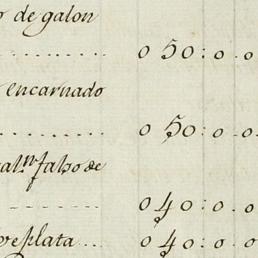 o de galon
........... 050:0.0
encarnado
........... 050:0.0.
al.n falso de
........... 040:0.0
eplata... 040:0.0.